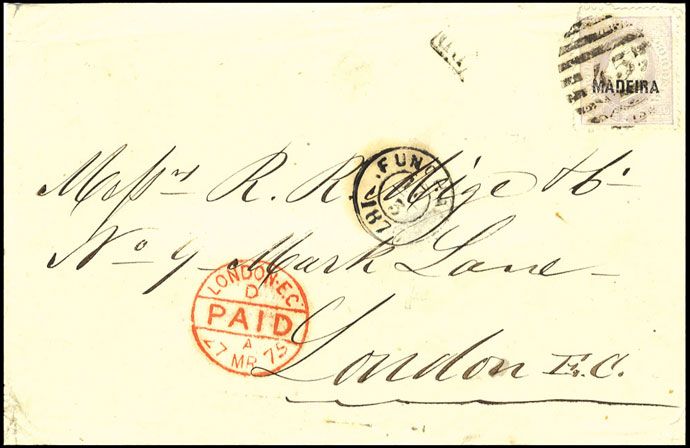 MADEIRA
FUNCHAL
Messrs R. R. & Co
No 9 Mark Lane
London E.C.
LONDON·E.C.
D
PAID
A
27 MR 75